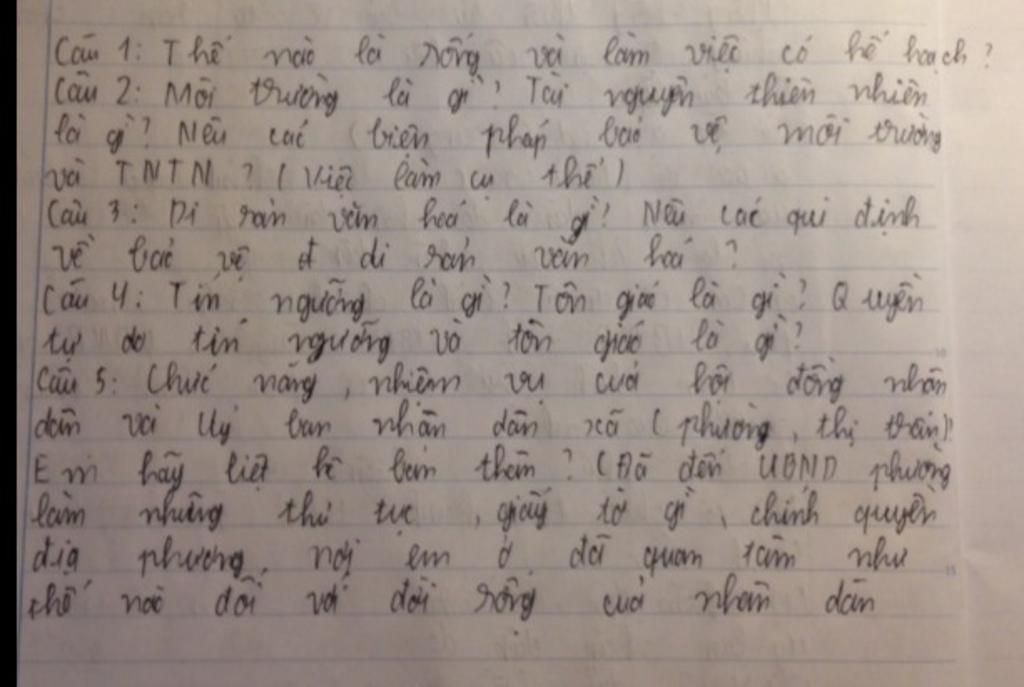 Câu 1: Thế nào là sống và làm việc có kế hoạch?
Câu 2: Môi trường là gì? Tài nguyên thiên nhiên
là gì? Nêu các (biện pháp bảo vệ môi trường
và TNTN? (Việc làm cụ thể)
Câu 3: Di sản văn hoá là gì? Nêu các qui định
về bảo vệ đ di sản văn hoá?
Câu 4: Tín ngưỡng là gì? Tôn giáo là gì? Quyền
tự do tín ngưỡng và tôn giáo là gì?
Câu 5: Chức năng, nhiệm vụ của hội đồng nhân
dân và Uỷ ban nhân dân xã (phường, thị trấn)?
Em hãy liệt kê bản thân? (Đã đến UBND phường
làm những thủ tục, giấy tờ gì, chính quyền
địa phương, nơi em ở đã quan tâm như
thế nào đối với đời sống của nhân dân